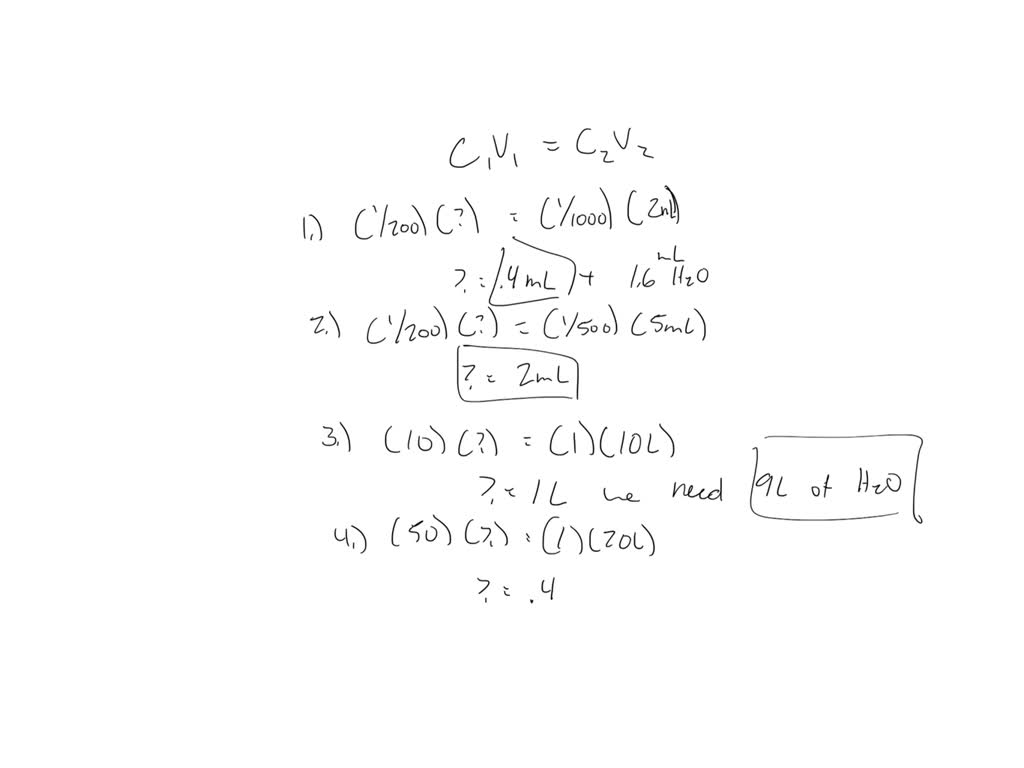 C₁V₁ = C₂V₂
1.) (1/200) (?) = (1/1000) (2mL)
? = .4mL + 1.6 mL H₂O
2.) (1/200) (?) = (1/500) (5mL)
? = 2mL
3.) (10) (?) = (1)(10L)
? = 1L we need 9L of H₂O
4.) (50) (?) = (1)(20L)
? = .4